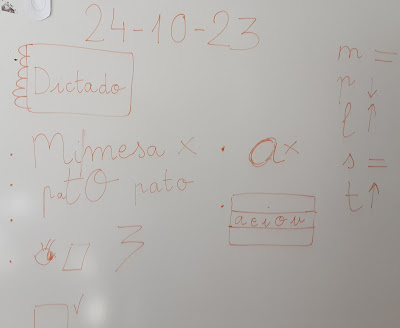 24-10-23
Dictado
Mi mesa x
paTO pato
3
a x
a e i o u
m =
p ↓
l ↑
s =
t ↑